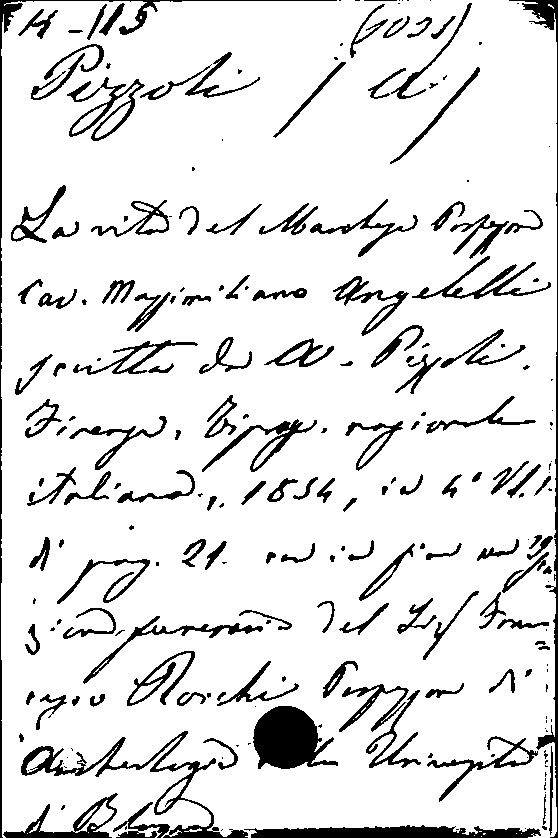 14-115
Pizzoli (A)
La vita del Marchese Professore
Cav. Massimiliano Angelelli
scritta da A. Pizzoli.
Firenze, Tipog. nazionale
italiana, 1854, in 4° Vol. 1
di pag. 21. con in fine una
funeraria del Sig. Fran=
cesco Rocchi Professore di
Archeologia nella Università
di Bologna